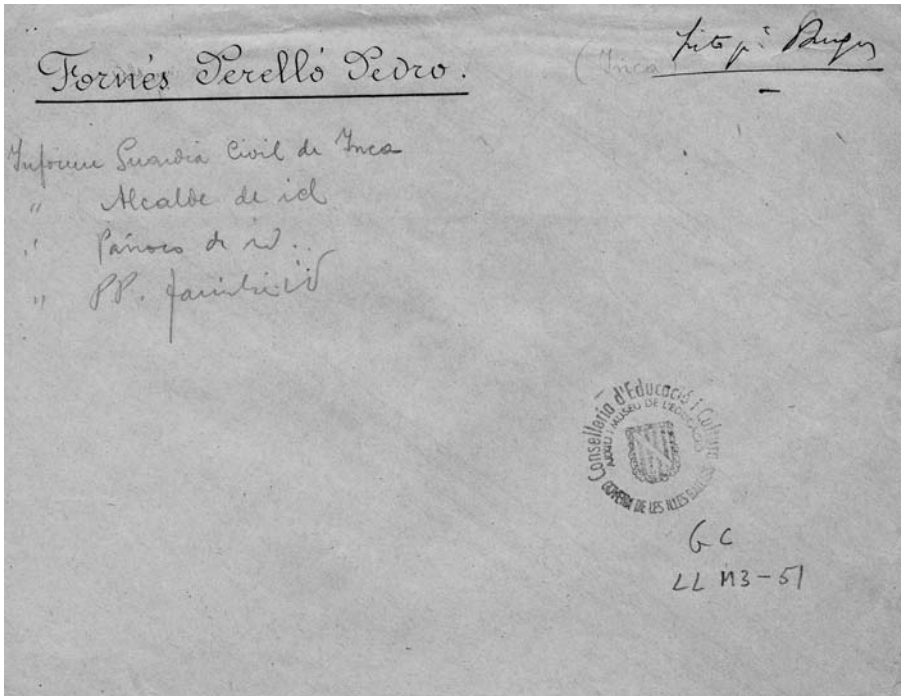 Fornés Perelló Pedro.
(Inca
Listo pª Burgos
Informe Guardia Civil de Inca
" Alcalde de id
" Párroco de id.
" PP.
Conselleria d'Educació i Cultura
ARXIU I MUSEU DE L'EDUCACIÓ
GOVERN DE LES ILLES BALEARS
GC
LL M3-51